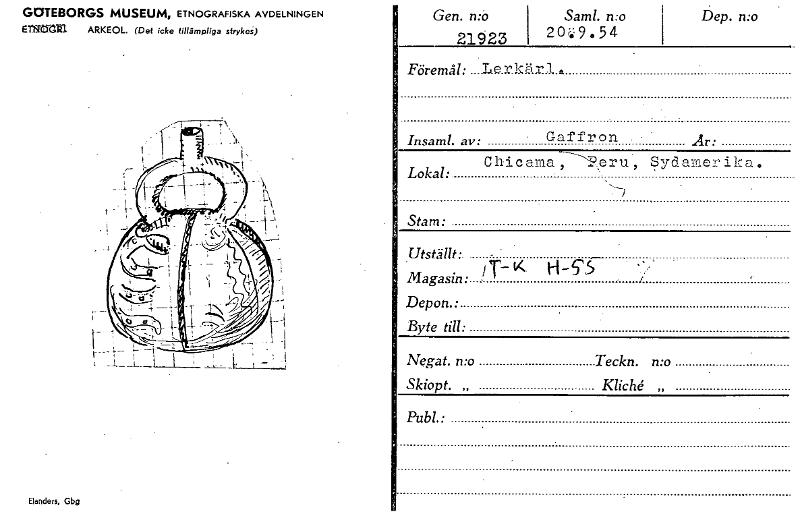 GÖTEBORGS MUSEUM, ETNOGRAFISKA AVDELNINGEN
ETNOGR. ARKEOL. (Det icke tillämpliga strykes)
Elanders, Gbg
Gen. n:o Saml. n:o Dep. n:o
21923 20.9.54
Föremål: Lerkärl.
Insaml. av: Gaffron År:
Lokal: Chicama, Peru, Sydamerika.
Stam:
Utställt:
Magasin: T-K H-55
Depon.:
Byte till:
Negat. n:o Teckn. n:o
Skiopt. „ Kliché „
Publ.: